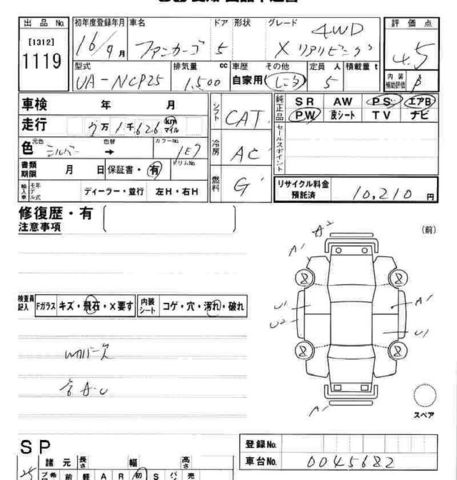 出品No.
初年度登録年月 車名 ドア 形状 グレード
評価点
[1312]
1119
16/9月 ファンカーゴ 5 X リアリビング 4WD
4.5
型式 排気量 cc 車歴 その他 定員 人 積載量 t
内装補助評価 B
UA-NCP25 1,500 自家用 5
車検 年 月
走行 7万1千626 km マイル
色 元色 シルバー 色替 カラーNo. 1E7
書類期限 月 日 保証書・有 リムジンNo.
輸入車 モデル年式 ディーラー・並行 左H・右H
シフト CAT.
冷房 AC
燃料 G
純正品 SR AW PS エアB
PW 皮シート TV ナビ
セールスポイント
リサイクル料金
預託済 10,210 円
修復歴・有
注意事項
(前)
A1 A2
U1 A1
U2 U1
A1
スペア
検査員記入 Fガラス キズ・飛石・X要す 内装シート コゲ・穴・汚れ・破れ
SP
登録No.
車台No. 0045682
諸元 長さ 幅 高さ